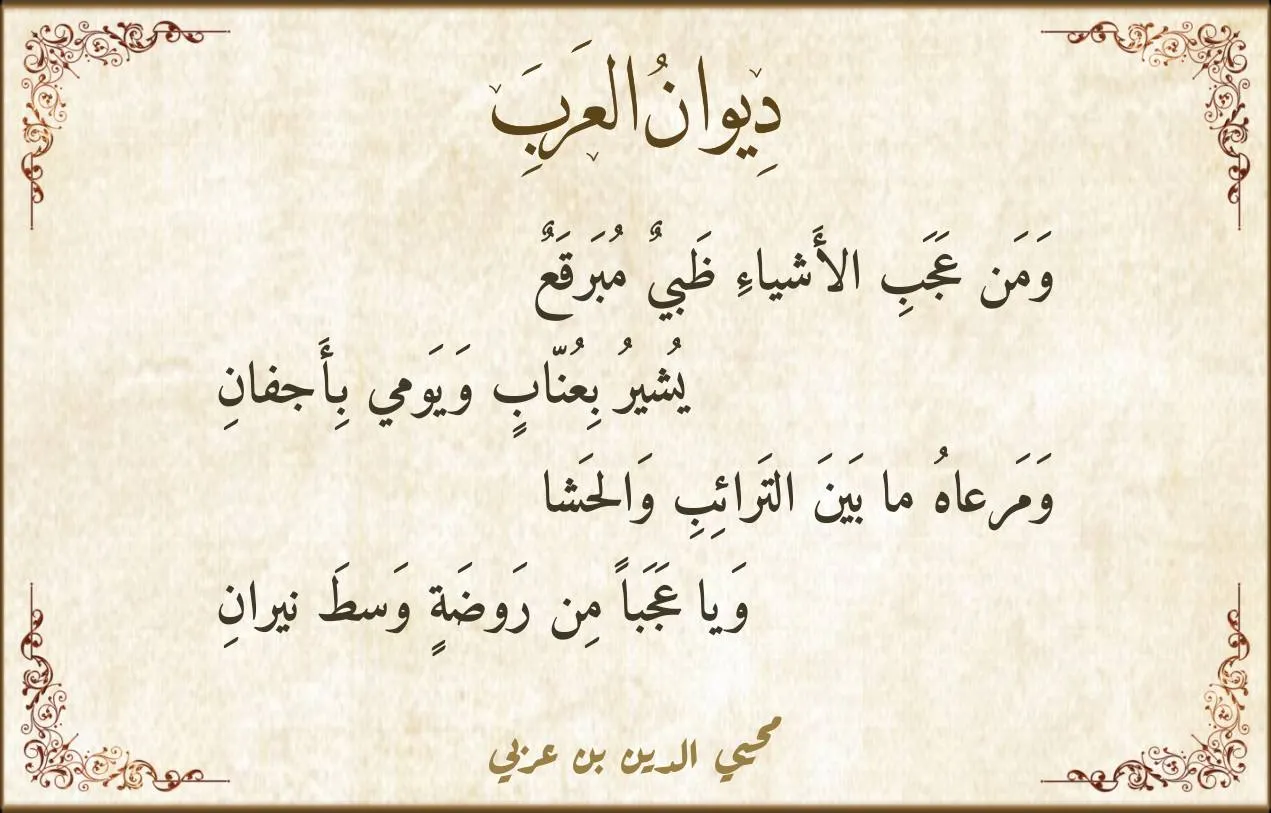 دِيوانُ العَرَبِ
وَمَن عَجَبِ الأَشياءِ ظَبيٌ مُبَرقَعٌ
يُشيرُ بِعُنّابٍ وَيَومي بِأَجفانِ
وَمَرعاهُ ما بَينَ التَرائِبِ وَالحَشا
وَيا عَجَباً مِن رَوضَةٍ وَسطَ نيرانِ
محيي الدين بن عربي